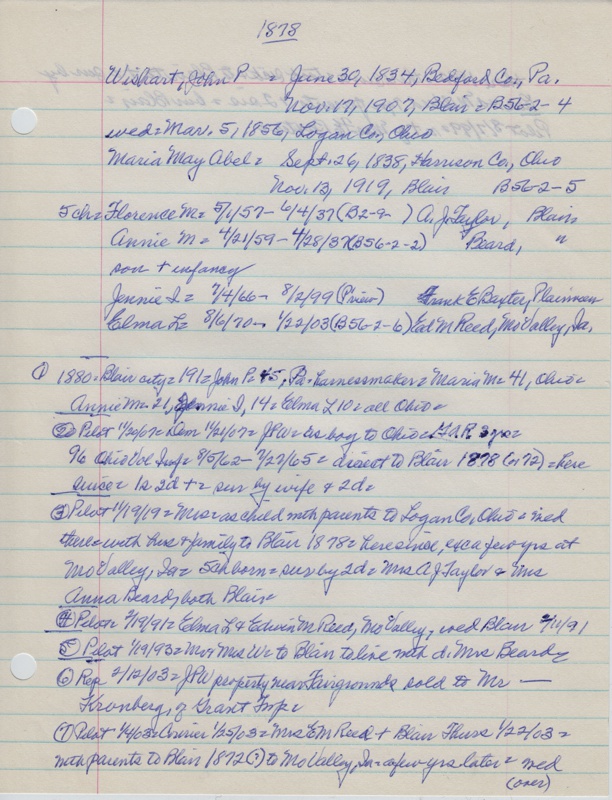 1878
Wishart, John P = June 30, 1834, Bedford Co, Pa.
Nov. 17, 1907, Blair = B56-2-4
wed = Mar. 5, 1856, Logan Co, Ohio
Maria May Abel = Sept. 26, 1838, Harrison Co, Ohio
Nov. 13, 1919, Blair B56-2-5
5 ch = Florence M = 5/1/57 - 6/4/37 (B2-9- ) A. J. Taylor, Blair
Annie M = 4/21/59 - 4/28/37 (B56-2-2) Beard, "
son + infancy
Jennie I = 7/4/66 - 8/2/99 (P'view) Frank E Baxter, Plainview
Elma L = 8/6/70 - 1/22/03 (B56-2-6) Ed M Reed, Mo Valley, Ia.
① 1880 = Blair city = 191 = John P = 45, Pa. harnessmaker = Maria M = 41, Ohio =
Annie M = 21, Jennie I, 14 = Elma L 10 = all Ohio =
② Pilot 11/20/07 = Dem 11/21/07 = JPW = as boy to Ohio = GAR 3 yrs =
96 Ohio Vol Inf = 8/5/62 - 7/27/65 = direct to Blair 1878 (or 72) = here
since = 1s 2d + = sur by wife + 2d =
③ Pilot 11/19/19 = Mrs = as child with parents to Logan Co, Ohio = wed
there = with hus + family to Blair 1878 = here since, exc a few yrs at
Mo Valley, Ia = 5 ch born = sur by 2d = Mrs A J Taylor + Mrs
Anna Beard, both Blair =
④ Pilot /19/91 = Elma L + Edwin M Reed, Mo Valley, wed Blair /11/91
⑤ Pilot 1/19/93 = Mr + Mrs W = to Blair to live with d. Mrs Beard =
⑥ Rep 2/12/03 = JPW property near Fairgrounds sold to Mr —
Kronberg, of Grant Twp =
⑦ Pilot 1/4/03 = Courier 1/25/03 = Mrs E M Reed + Blair Thurs 1/22/03 =
with parents to Blair 1872 (?) to Mo Valley, Ia = a few yrs later = wed
(over)